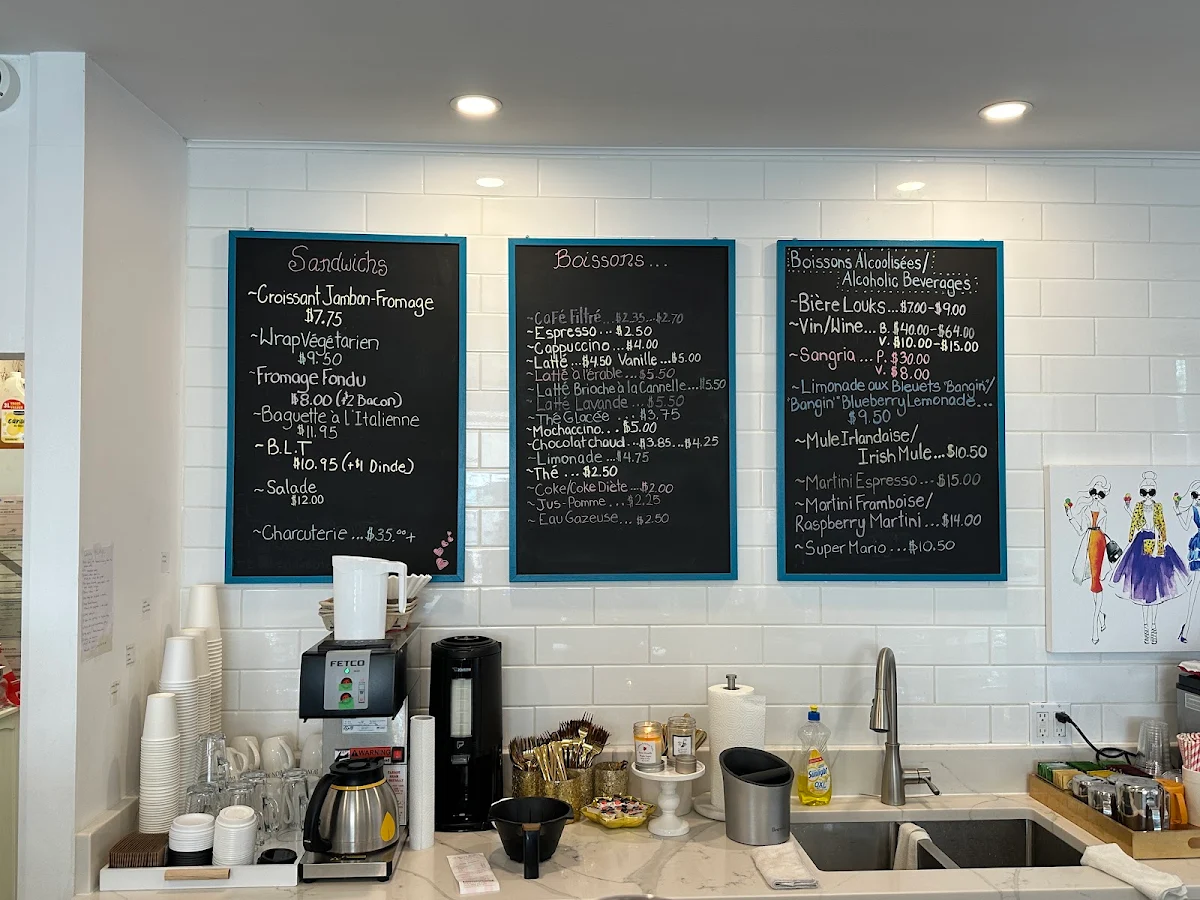 Sandwichs
~Croissant Jambon-Fromage
$7.75
~Wrap Végétarien
$9.50
~Fromage Fondu
$8.00 (+$2 Bacon)
~Baguette à L'Italienne
$11.95
~B.L.T
$10.95 (+$1 Dinde)
~Salade
$12.00
~Charcuterie...$35.00+
Boissons...
~Café Filtré...$2.35...$2.70
~Espresso...$2.50
~Cappuccino...$4.00
~Latté...$4.50 Vanille...$5.00
~Latté à l'érable...$5.50
~Latté Brioche à la Cannelle...$5.50
~Latté Lavande...$5.50
~Thé Glacée...$3.75
~Mochaccino...$5.00
~Chocolat chaud...$3.85...$4.25
~Limonade...$4.75
~Thé...$2.50
~Coke/Coke Diète...$2.00
~Jus-Pomme...$2.25
~Eau Gazeuse...$2.50
Boissons Alcoolisées/
Alcoholic Beverages
~Bière Louks...$7.00-$9.00
~Vin/Wine... B. $40.00-$64.00
V. $10.00-$15.00
~Sangria... P. $30.00
V. $8.00
~Limonade aux Bleuets "Bangin"/
"Bangin" Blueberry Lemonade...
$9.50
~Mule Irlandaise/
Irish Mule...$10.50
~Martini Espresso...$15.00
~Martini Framboise/
Raspberry Martini...$14.00
~Super Mario...$10.50
FETCO
WARNING
Sunlight